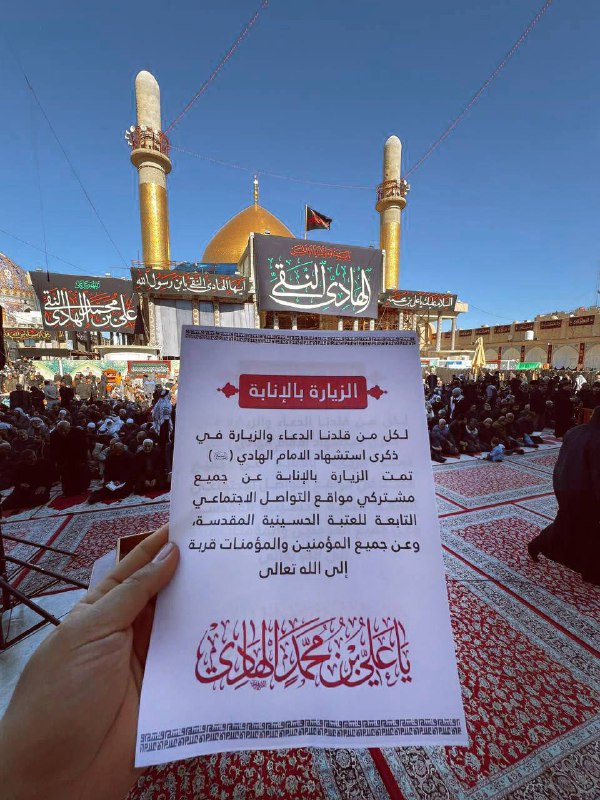 الهادي النقي
أيها الهادي النقي يابن رسول الله
علي بن محمد النقي الهادي
الزيارة بالإنابة
لكل من قلدنا الدعاء والزيارة في
ذكرى استشهاد الامام الهادي (عليه السلام)
تمت الزيارة بالإنابة عن جميع
مشتركي مواقع التواصل الاجتماعي
التابعة للعتبة الحسينية المقدسة،
وعن جميع المؤمنين والمؤمنات قربة
إلى الله تعالى
يَا عَلِيُّ بْنَ مُحَمَّدٍ الْهَادِي